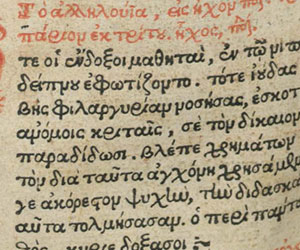 Το ἀλληλούϊα, εἰς ἦχον πλ.
πάριον ἐκ τρίτου. ἦχος, πλ.
τε οἱ ἔνδοξοι μαθηταὶ, ἐν τῷ νι
δείπνου ἐφωτίζοντο. τότε ἰούδας
βὴς φιλαργυρίαν νοσήσας, ἐσκοτ
ἀνόμοις κριταῖς, σὲ τὸν δίκαιον
παραδίδωσι. βλέπε χρημάτων
τὸν διὰ ταῦτα ἀγχόνῃ χρησάμεν
γε ἀκόρεστον ψυχὴν, τὴν διδασκα
αῦτα τολμήσασαν. ὁ περὶ πάντα
κύριε δόξα σοι